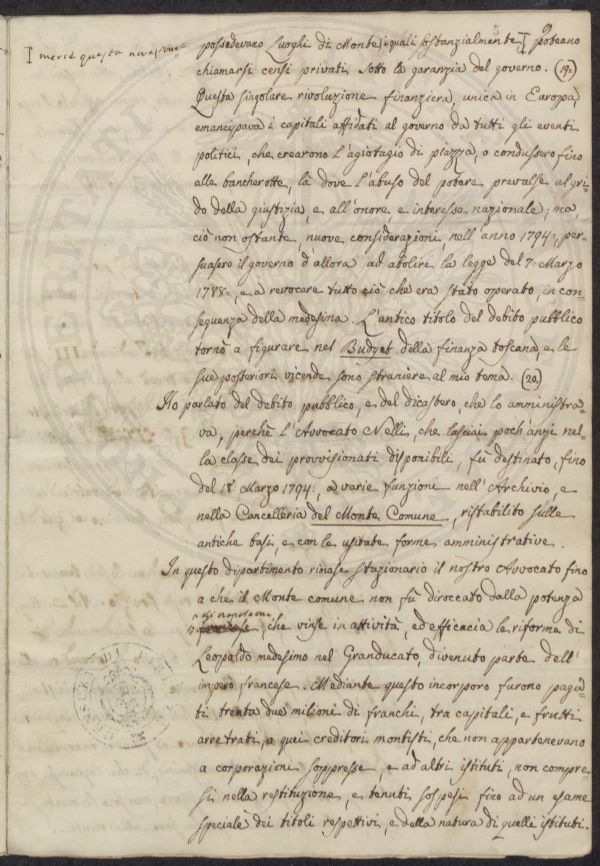 I mercè questa
possedevano Luoghi di Monte, i quali sostanzialmente I poteano
chiamarsi censi privati sotto la garanzia del governo. (19.)
Questa singolare rivoluzione finanziera, unica in Europa,
emancipava i capitali affidati al governo da tutti gli eventi
politici, che crearono l'agiotagio di piazza, o condussero fino
alle bancherotte, là dove l'abuso del potere prevalse al gri-
do della giustizia, e all'onore, e interesse nazionale; ma
ciò non ostante, nuove considerazioni, nell'anno 1794., per-
suasero il governo d'allora ad abolire la legge del 7. Marzo
1788., e a revocare tutto ciò che era stato operato, in con-
seguenza della medesima. L'antico titolo del debito pubblico
tornò a figurare nel Budget della finanza toscana, e le
sue posteriori vicende sono straniere al mio tema. (20.)
Ho parlato del debito pubblico, e del dicastero, che lo amministra-
va, perchè l'Avvocato Nelli, che lasciai poch'anzi nel-
la classe dei provvisionati disponibili, fù destinato, fino
del 18. Marzo 1794., a varie funzioni nell'Archivio, e
nella Cancelleria del Monte Comune, ristabilito sulle
antiche basi, e con le usitate forme amministrative.
In questo dipartimento rimase stazionario il nostro Avvocato fino
a che il Monte comune non fù diroccato dalla potenza
napoleonica
, che vinse in attività, ed efficacia le riforme di
Leopoldo medesimo nel Granducato, divenuto parte dell'
impero francese. Mediante questo incorporo furono paga-
ti trenta due milioni di franchi, tra capitali, e frutti
arretrati, a quei creditori montisti, che non appartenevano
a corporazioni soppresse, e ad altri istituti, non compre-
si nella restituzione, e tenuti sospesi fino ad un esame
speciale dei titoli respettivi, e della natura di quelli istituti.